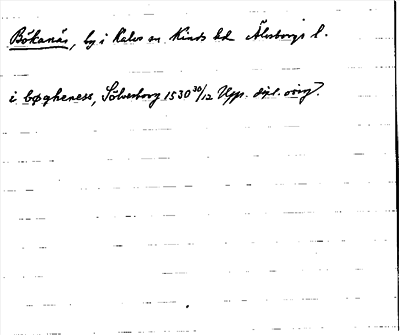 Bökanäs, by i Kalvs sn Kinds hd Älvsborgs l.
i bøgheness, Sölvesborg 1530 30/12 Upps. dipl. orig.